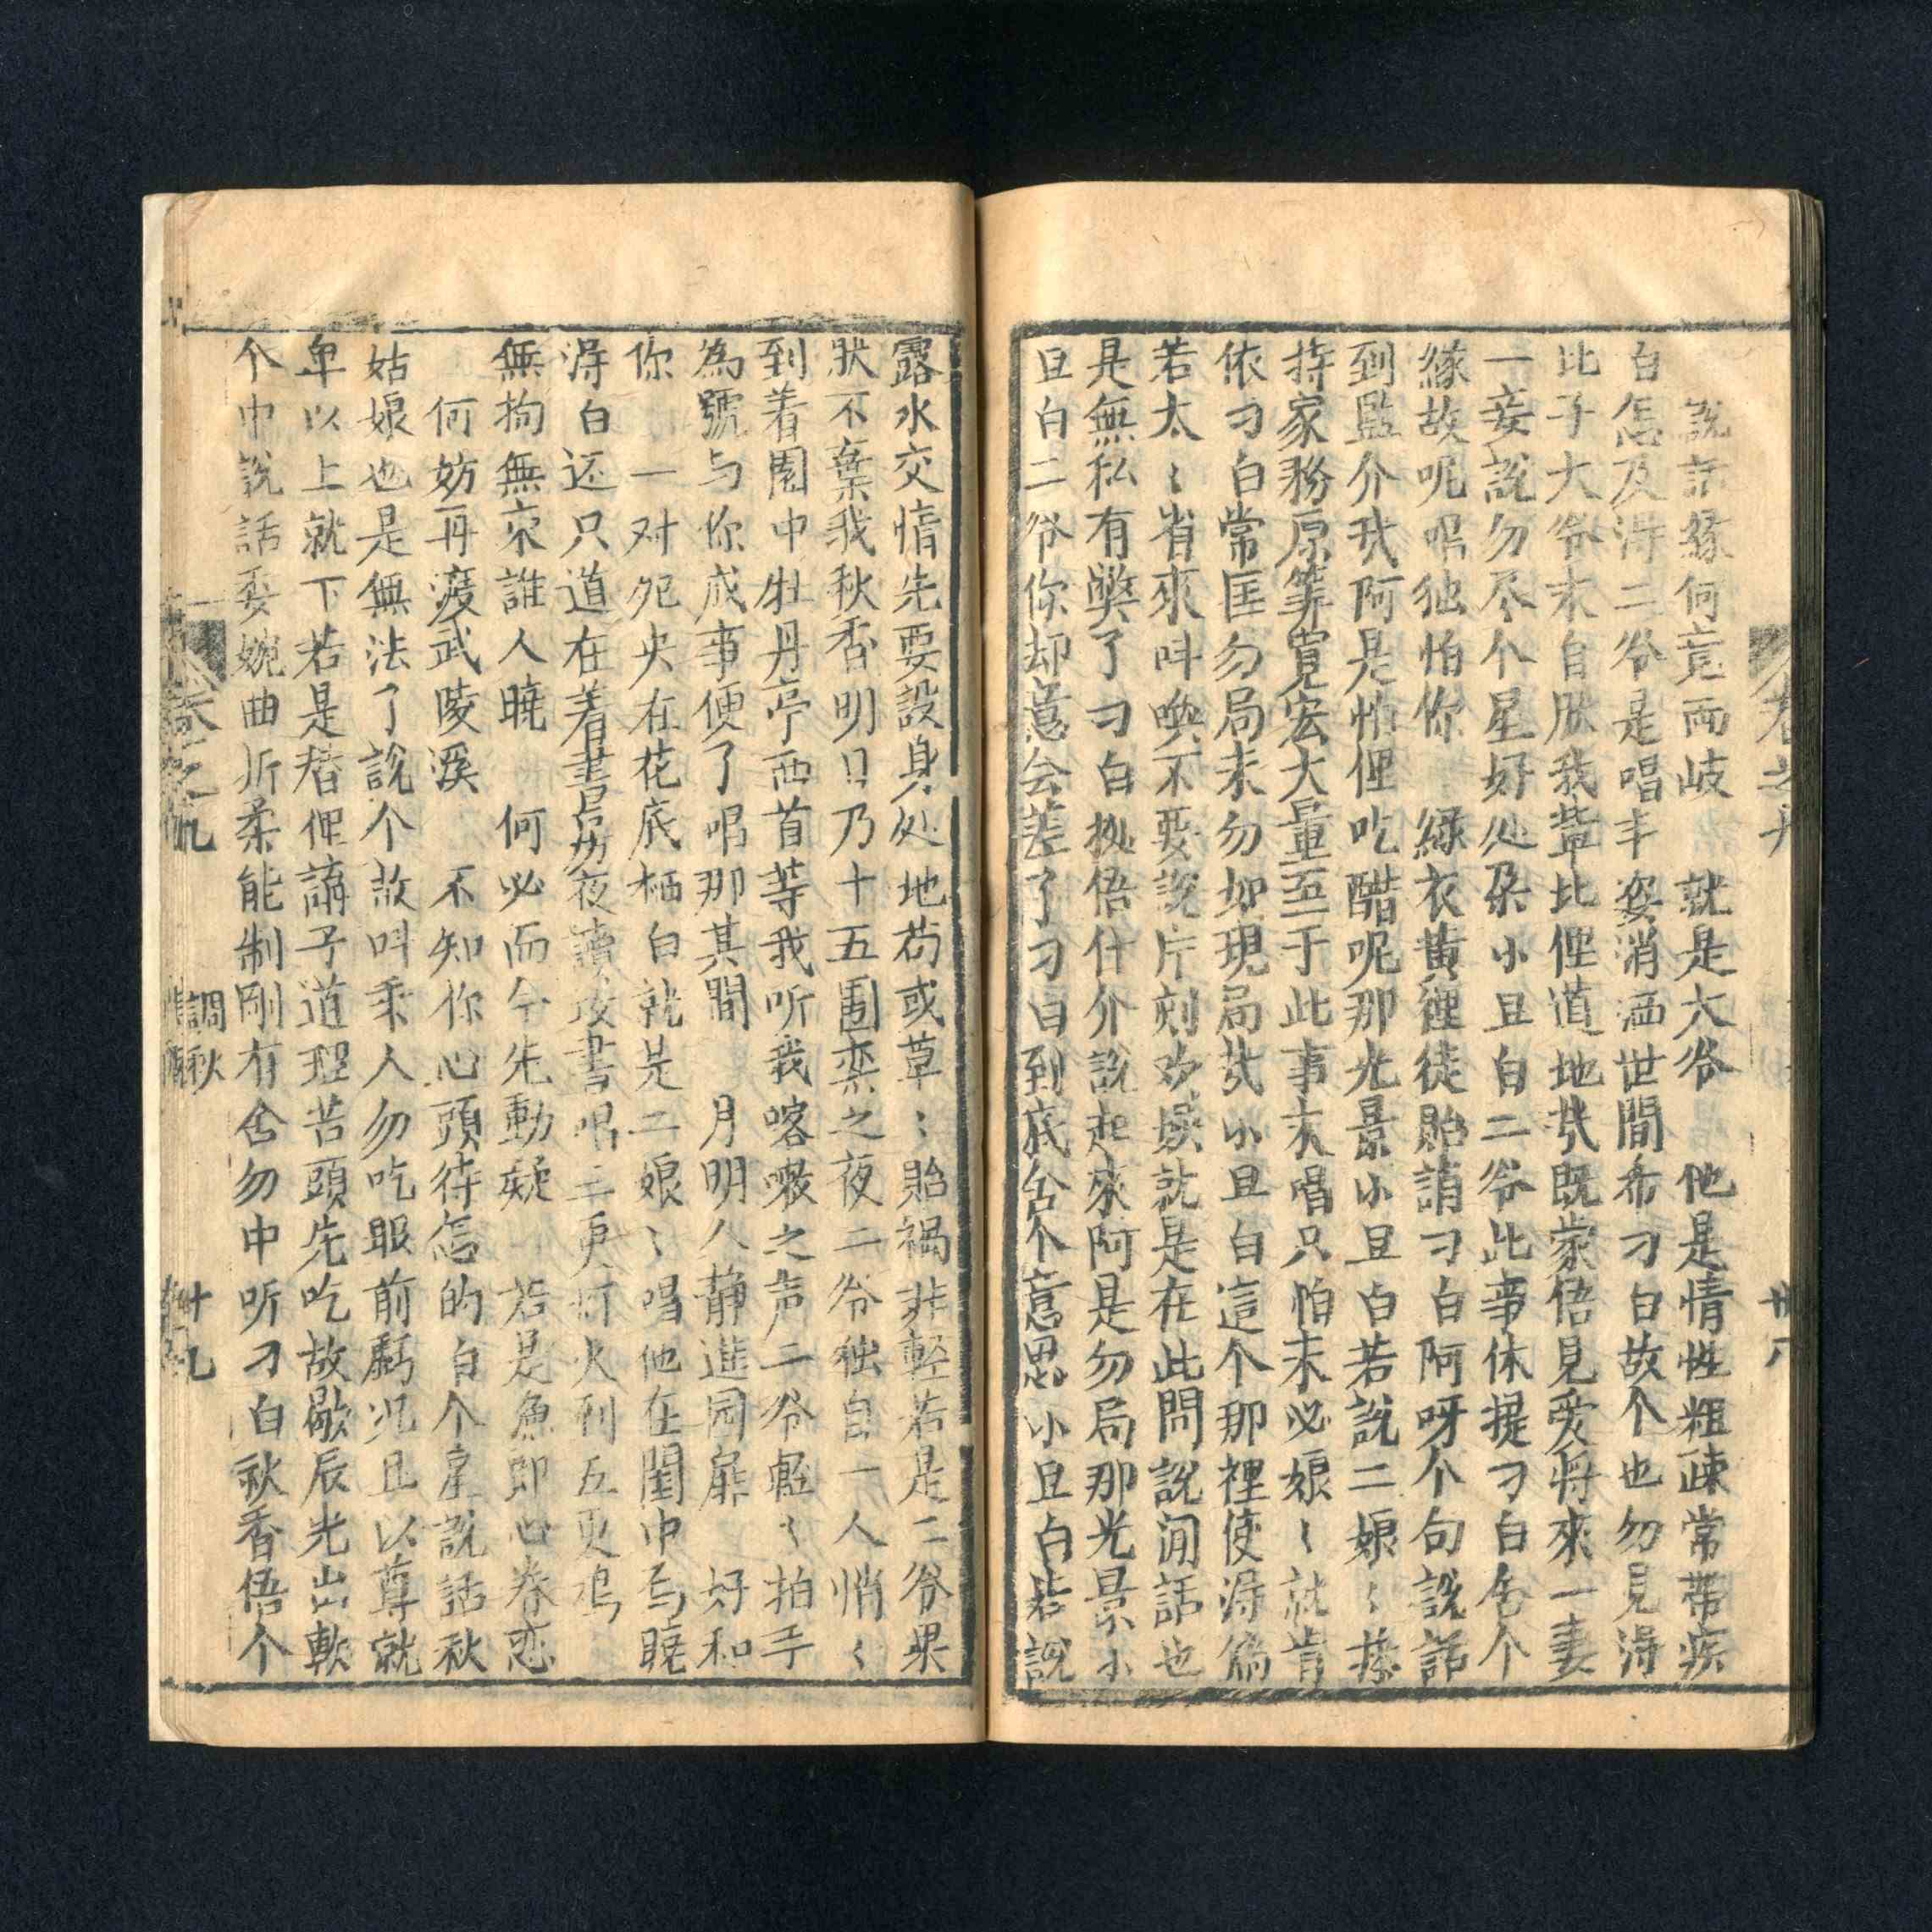 卷之九
十八
說話緣何意兩岐　就是大爷　他是情性粗疎常帶疾
白怎及淂二爷是唱丰姿消洒世間希刁白故个也勿見淂
比子大爷末自肽我輩比俚道地㢤既蒙俉見爱将來一妻
一妾說勿尽个星好处朶小旦白二爷此事休提刁白舍个
緣故呢唱独怕你　綠衣黃裡徒貽誚刁白阿呀个句說話
到監介我阿是怕俚吃醋呢那光景小旦白若說二娘〻操
持家務原筭寬宏大量至于此事末唱只怕末必娘〻就肯
依刁白常匡勿局末勿如現局㢤小旦白這个那裡使淂倘
若太〻省來呌喚不要說片刻欢娱就是在此間說闲話也
是無私有獘了刁白拟俉什介說起來阿是勿局那光景小
旦白二爷你却意会差了刁白到底舍个意思小旦白若說
露水交情先要設身处地苟或草〻貽禍非輕若是二爷果
狀不棄我秋香明日乃十五团栾之夜二爷独自一人悄〻
到着園中牡丹亭西首等我听我喀嗽之声二爷輕〻拍手
為號与你成事便了唱那其間　月明人静進园扉　好和
你　一对夗央在花底栖白就是二娘〻唱他在閨中烏曉
淂白还只道在着書房夜讀攻書唱三更灯火到五更鸡
無拘無束誰人曉　何必而今先動疑　若是魚郎心眷恋
何妨再渡武陵溪　不知你心頭待怎的白个星說話秋
姑娘也是無法了說个故呌乘人勿吃眼前虧况且以尊就
卑以上就下若是㨋俚講子道理苦頭先吃故歇辰光出軟
个巾說話委婉曲折柔能制剛有舍勿中听刁白秋香俉个
卷之九
調秋
十九